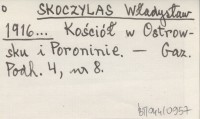 SKOCZYLAS Władysław
1916... Kościół w Ostrow-
sku i Poroninie. — Gaz.
Podh. 4, nr 8.
BJ/944/0957